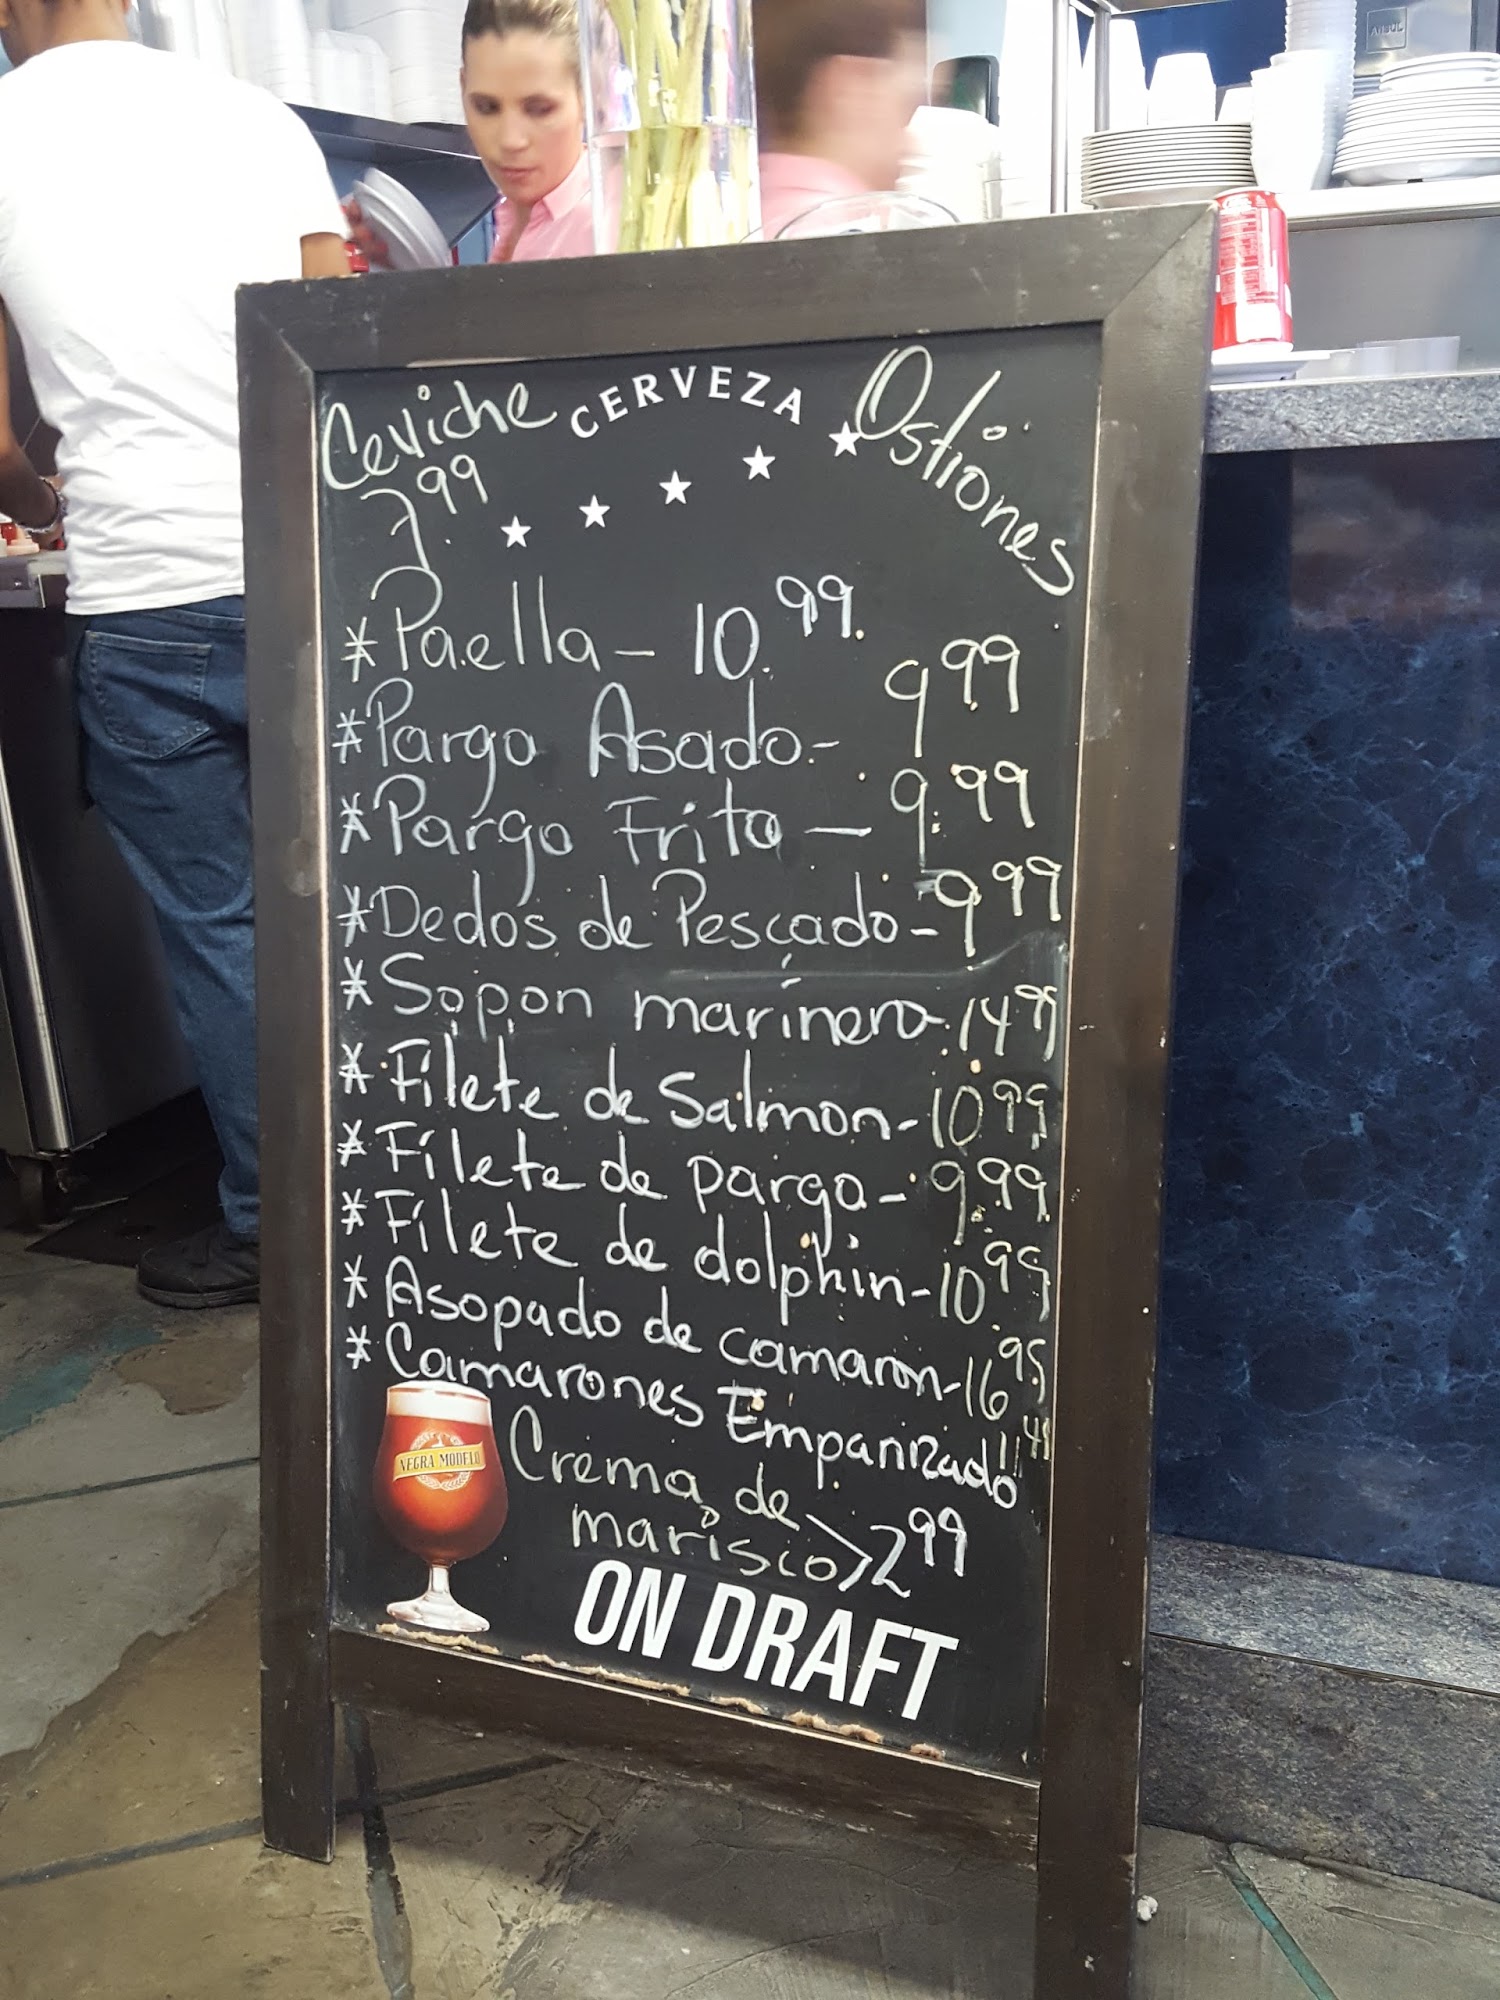 CERVEZA
Ceviche
7.99
Ostiones
* Paella - 10.99.
* Pargo Asado - 9.99
* Pargo Frito - 9.99
* Dedos de Pescado - 9.99
* Sopon marinero. 14.95
* Filete de Salmon - 10.99
* Filete de pargo - 9.99
* Filete de dolphin - 10.99
* Asopado de camaron - 16.95
* Camarones Empanizado
Crema de
marisco > 2.99
NEGRA MODELO
ON DRAFT